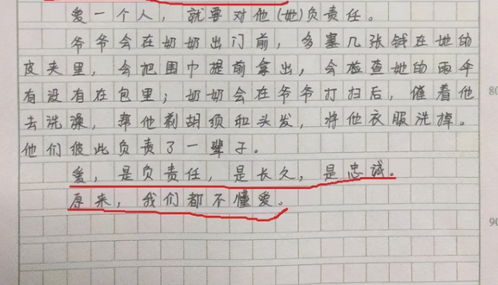 爱一个人，就要对他(她)负责任。
爷爷会在奶奶出门前，多塞几张钱在她的
皮夹里，会把围巾提前拿出，会检查她的雨伞
有没有在包里；奶奶会在爷爷打扫后，催着他
去洗澡，帮他剃胡须和头发，将他衣服洗掉。
他们彼此负责了一辈子。
爱，是负责任，是长久，是忠诚。
原来，我们都不懂爱。